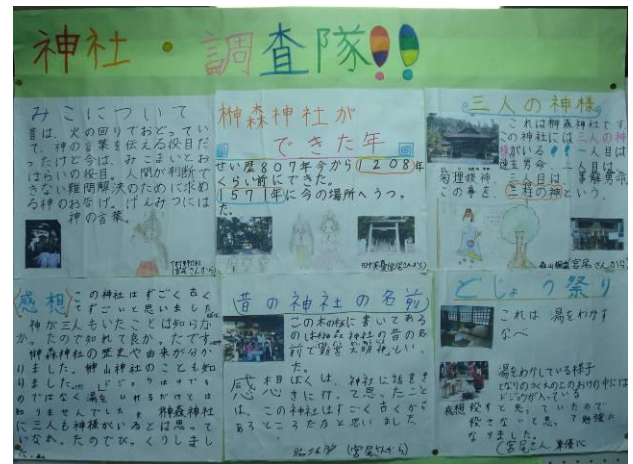 神社・調査隊!!
みこについて
昔は、火の回りでおどってい
て、神の言葉を伝える役目だ
ったけど今は、みこまいとお
はらいの役目。人間が判断で
きない難問解決のために求め
る神のお告げ。げんみつには
神の言葉。
榊森神社が
できた年
せい歴807年今から1208年
くらい前にできた。
1571年に今の場所へうつっ
た。
三人の神様
これは榊森神社です
この神社には三人の神
様がいる!!一人目は
この事を、三柱の神という。
感想
この神社はすごく古く
てすごいと思いました
神が三人もいたことは知らな
かったので知れて良かったです。
榊森神社の歴史や由来が分か
りました。榊山神社のことも知
りました。
のではなく湯をいれるだけとは
知りませんでした。榊森神社
に三人も神様がいるとは思って
いなかったのでびっくりしまし
た。
昔の神社の名前
この木の板に書いてある
のは神社の昔の名
前で
た。
感想
ぼくは、神社に話をき
きに行って思ったこと
は、この神社はすごく古くから
あるところだなと思いました。
(宮尾さんから)
どじょう祭り
これは湯をわかす
なべ
湯をわかしている様子
となりのつくえの上のおりの中には
ドジョウが入っている
感想
殺すと思っていたので
殺さないと思って勉強に
なりました。